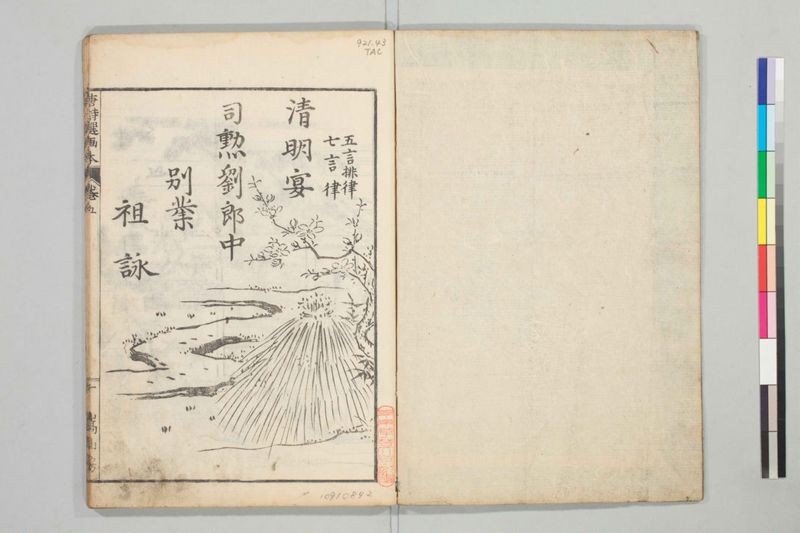 921.43
TAC
五言排律
七言律
清明宴
司勲劉郎中
別業
祖詠
唐詩選画本
巻五
10910842